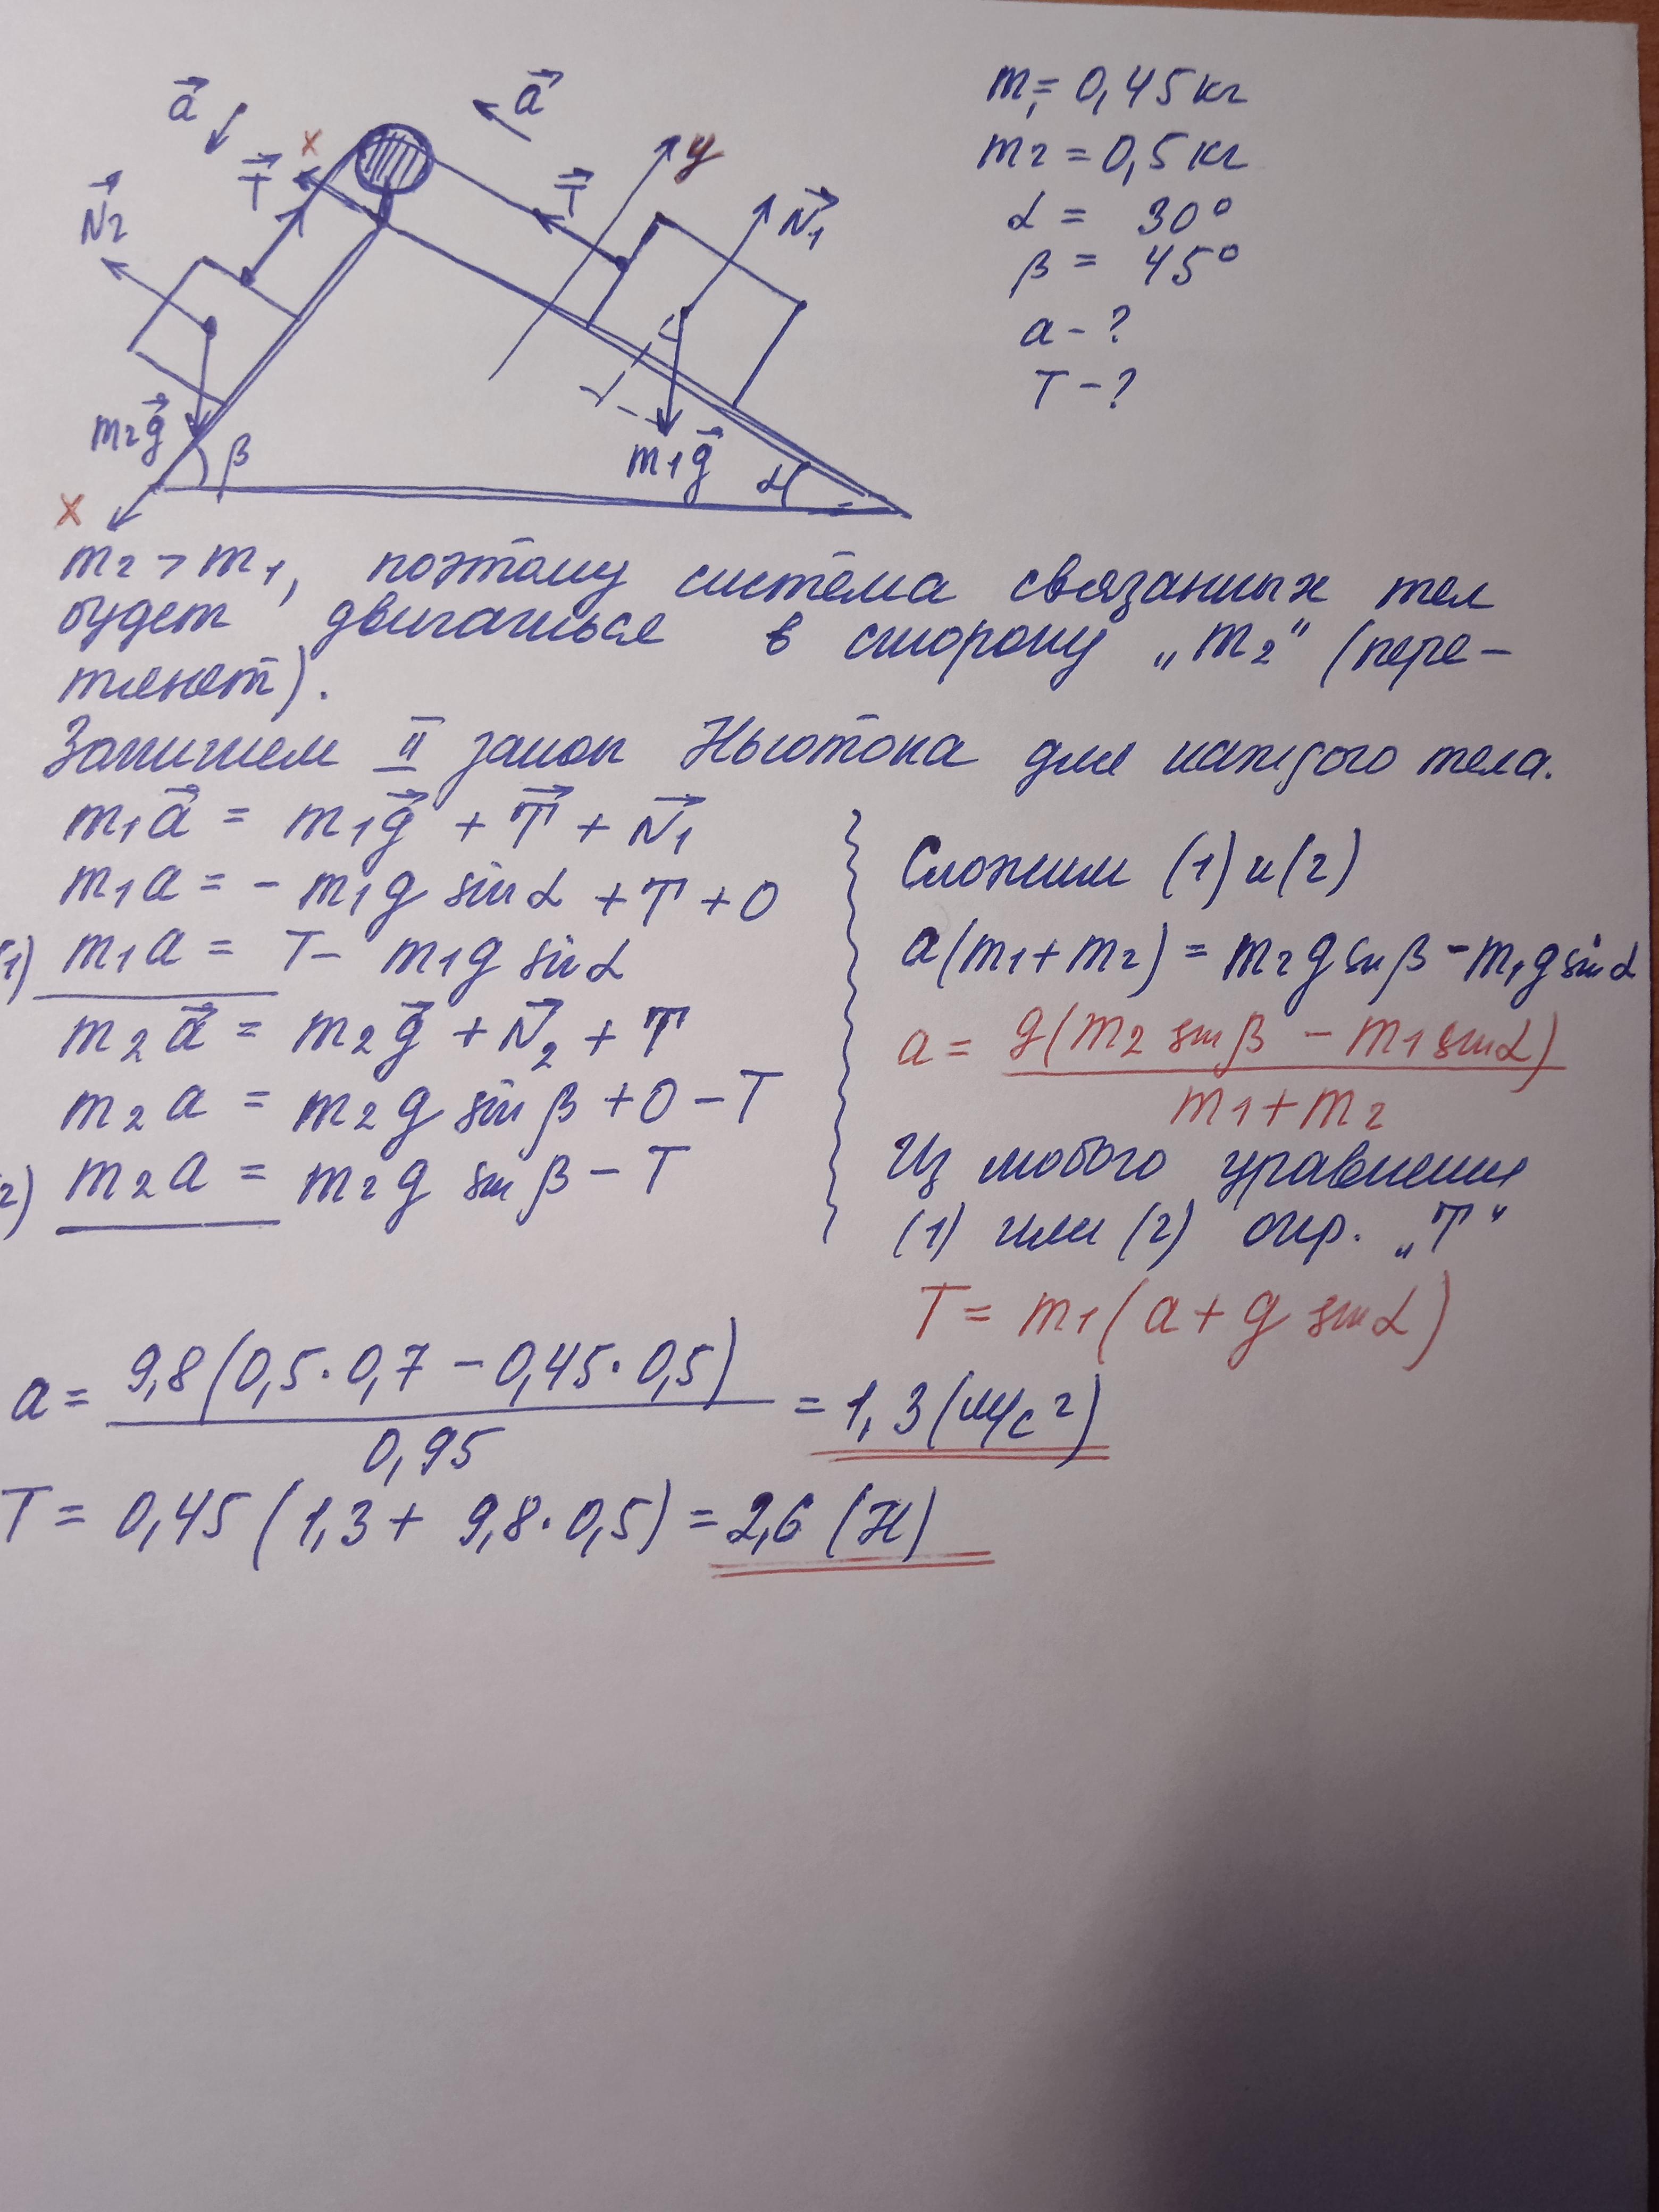 a⃗
a⃗
x
y
T⃗
T⃗
N⃗₂
N⃗₁
m₂g⃗
m₁g⃗
β
α
x
m₁ = 0,45 кг
m₂ = 0,5 кг
α = 30°
β = 45°
a - ?
T - ?
m₂ > m₁, поэтому система связанных тел
будет двигаться в сторону „m₂“ (пере-
тянет).
Запишем II закон Ньютона для каждого тела.
m₁a⃗ = m₁g⃗ + T⃗ + N⃗₁
m₁a = - m₁g sin α + T + 0
(1) m₁a = T - m₁g sin α
m₂a⃗ = m₂g⃗ + N⃗₂ + T⃗
m₂a = m₂g sin β + 0 - T
2) m₂a = m₂g sin β - T
Сложим (1) и (2)
a(m₁ + m₂) = m₂g sin β - m₁g sin α
a = g(m₂ sin β - m₁ sin α) / m₁ + m₂
Из любого уравнения
(1) или (2) опр. „T“
T = m₁(a + g sin α)
a = 9,8(0,5·0,7 - 0,45·0,5) / 0,95 = 1,3 (м/с²)
T = 0,45 (1,3 + 9,8·0,5) = 2,6 (Н)